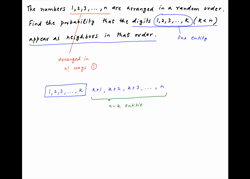 The numbers 1,2,3,...,n are arranged in a random order.
Find the probability that the digits 1,2,3,...,k (k<n)
appear as neighbors in that order.
One entity
arranged in
n! ways ①
1,2,3,..., k k+1, k+2, k+3, ..., n
n-k entities